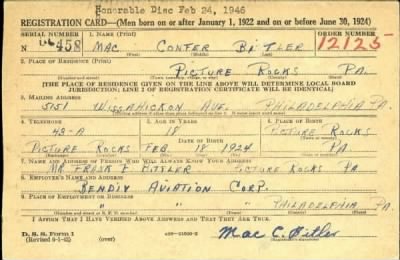 Honorable Disc Feb 24, 1946
REGISTRATION CARD—(Men born on or after January 1, 1922 and on or before June 30, 1924)
SERIAL NUMBER 1. NAME (Print) ORDER NUMBER
458 MAC CONFER BITLER 12125
(First) (Middle) (Last)
2. PLACE OF RESIDENCE (Print)
PICTURE ROCKS PA.
(Number and street) (Town, township, village, or city) (County) (State)
[THE PLACE OF RESIDENCE GIVEN ON THE LINE ABOVE WILL DETERMINE LOCAL BOARD
JURISDICTION; LINE 2 OF REGISTRATION CERTIFICATE WILL BE IDENTICAL]
3. MAILING ADDRESS
5151 WISSAHICKON AVE. PHILADELPHIA PA.
4. TELEPHONE 5. AGE IN YEARS 6. PLACE OF BIRTH
43-A 18 PICTURE ROCKS
DATE OF BIRTH
PICTURE ROCKS FEB. 18 1924 PA.
(Exchange) (Number) (Mo.) (Day) (Yr.) (State or country)
7. NAME AND ADDRESS OF PERSON WHO WILL ALWAYS KNOW YOUR ADDRESS
MR. FRANK E BITLER PICTURE ROCKS PA
8. EMPLOYER'S NAME AND ADDRESS
BENDIX AVIATION CORP.
9. PLACE OF EMPLOYMENT OR BUSINESS
" " PHILADELPHIA PA.
(Number and street or R. F. D. number) (Town) (County) (State)
I AFFIRM THAT I HAVE VERIFIED ABOVE ANSWERS AND THAT THEY ARE TRUE.
D. S. S. Form 1
Mac C. Bitler